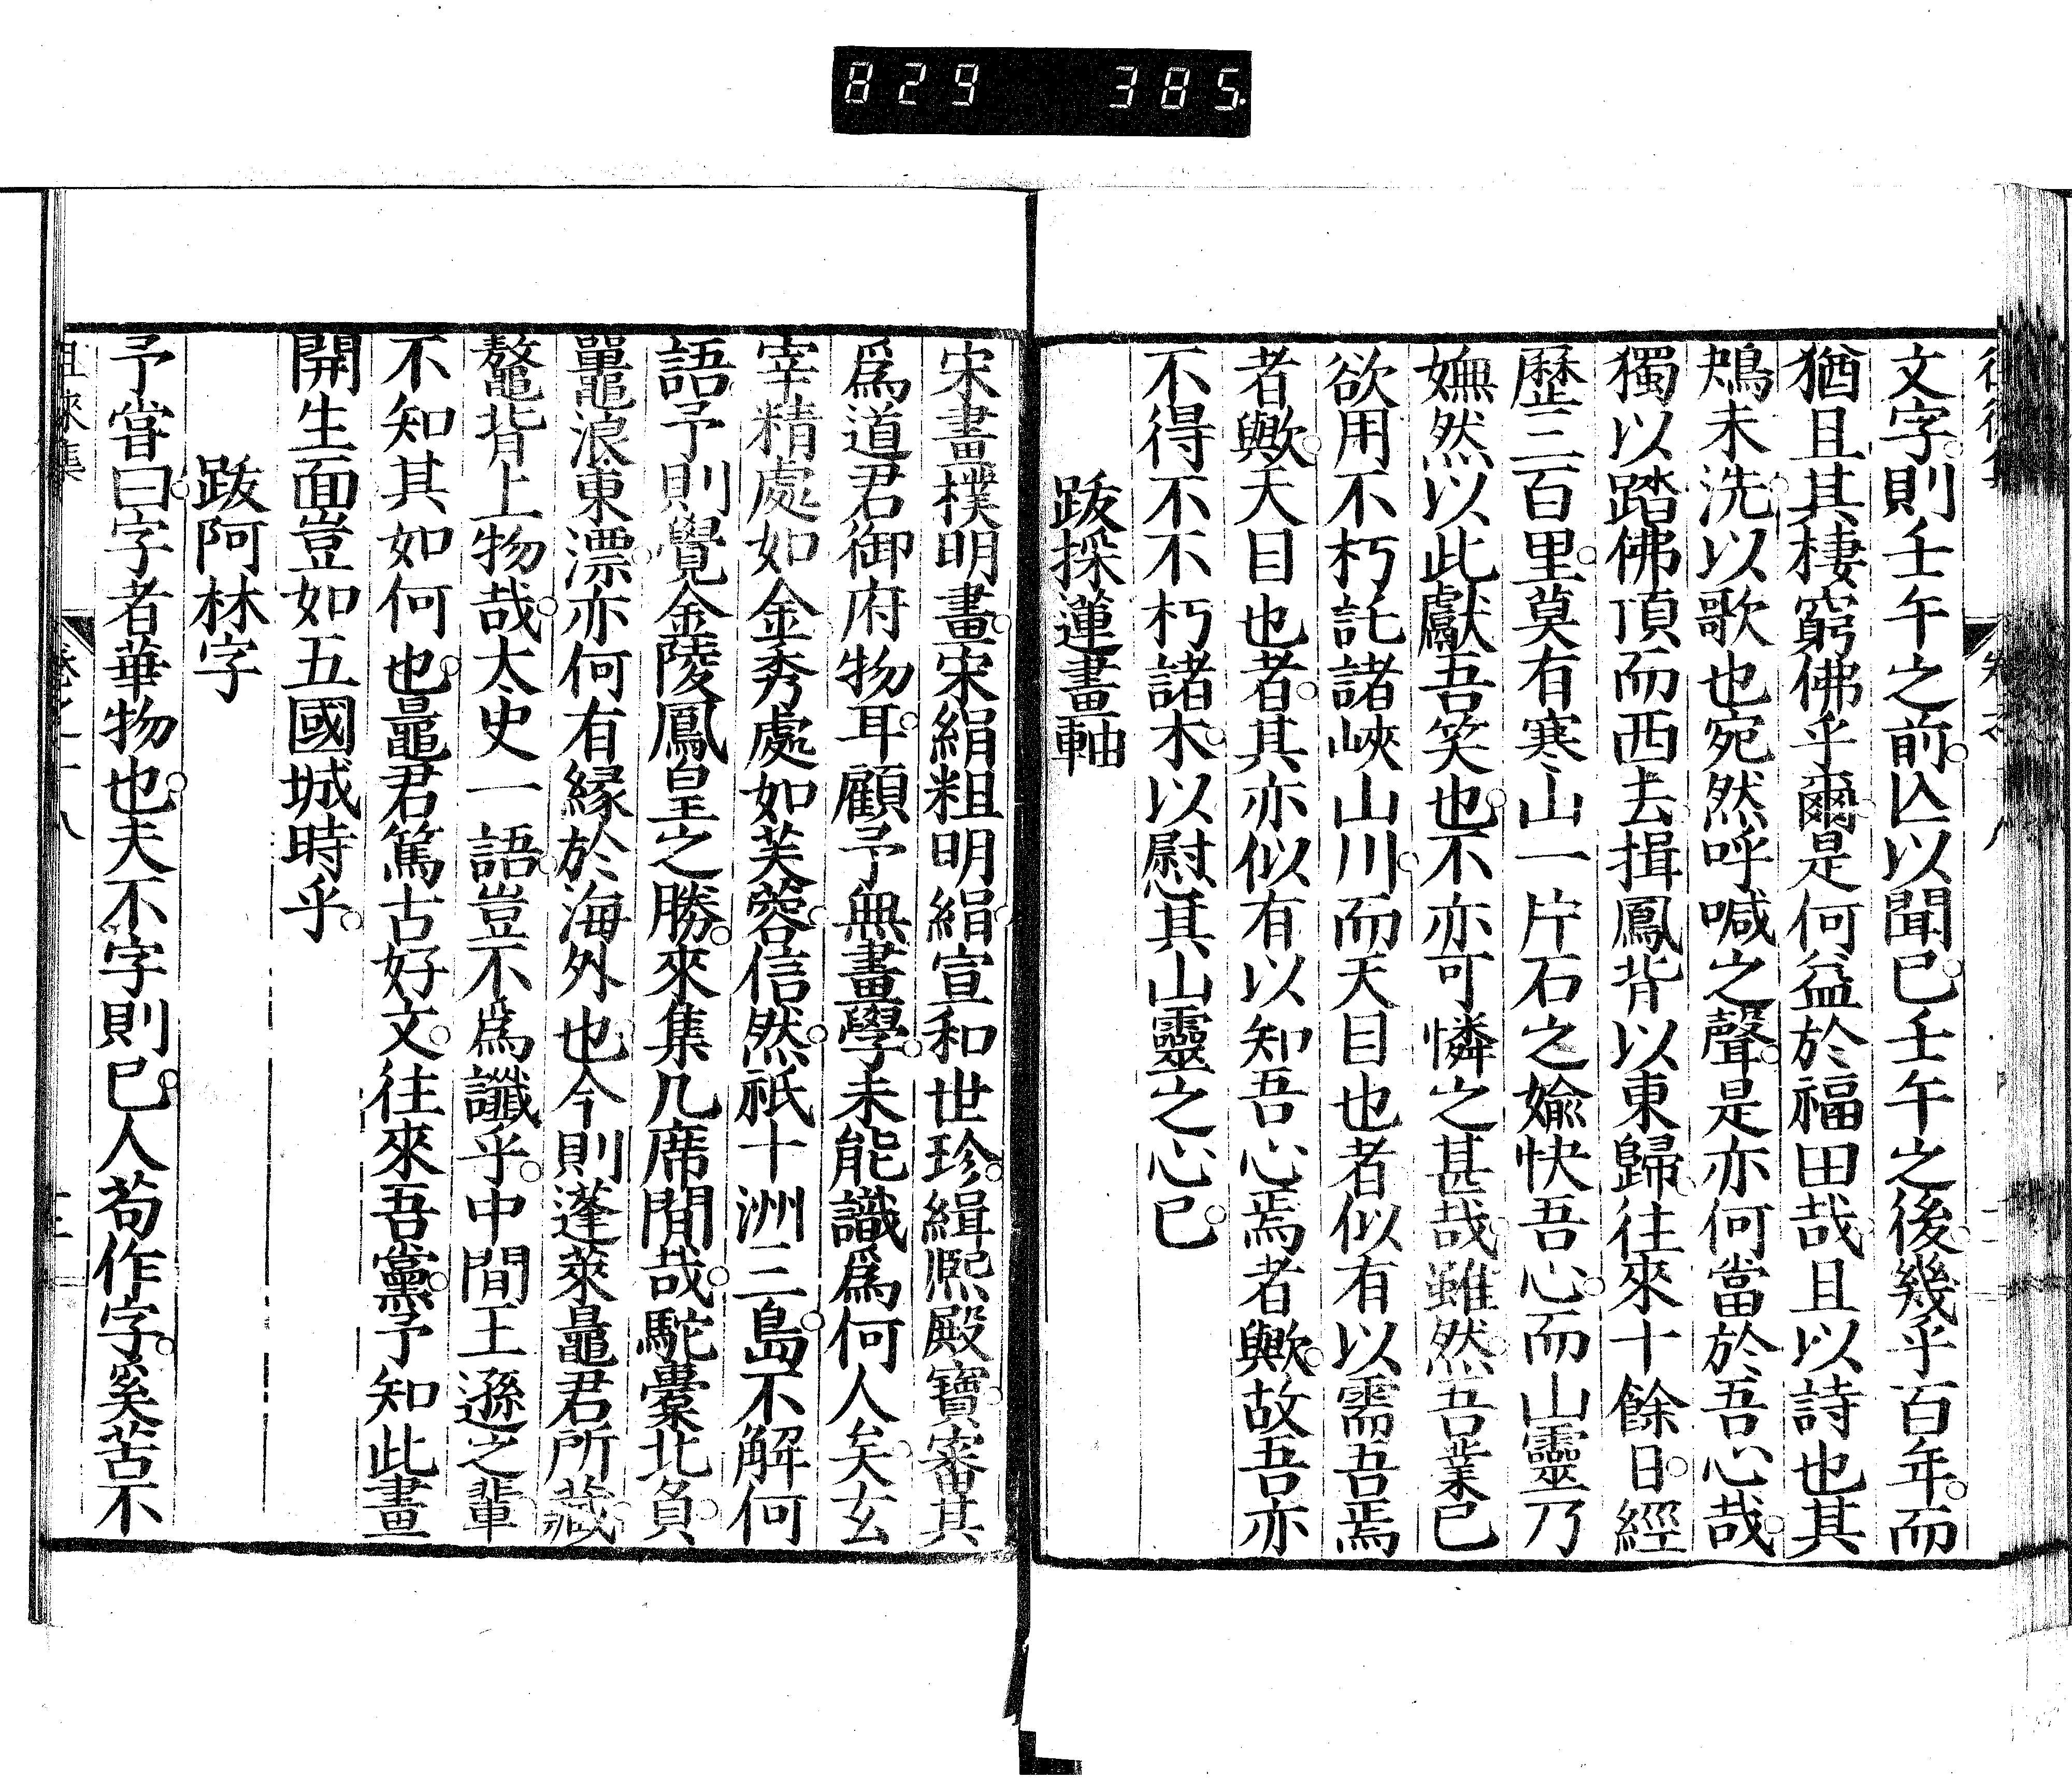 829 385
文字則壬午之前。亾以聞已。壬午之後。幾乎百年。而
猶且其棲窮佛乎。爾是何益於福田哉。且以詩也其
鴂未洗。以歌也宛然呼喊之聲。是亦何當於吾心哉。
獨以踏佛頂而西去。揖鳳背以東歸。往來十餘日。經
歷三百里。莫有寒山一片石之媮快吾心。而山靈乃
嫵然以此獻吾笑也。不亦可憐之甚哉。雖然。吾業已
欲用不朽託諸峽山川。而天目也者似有以需吾焉
者歟。天目也者。其亦似有以知吾心焉者歟。故吾亦
不得不不朽諸木。以慰其山靈之心已。
跋採蓮畫軸
宋畫樸明畫。宋絹粗明絹。宣和世珍。緝熙殿寶。審其
爲道君御府物耳。顧予無畫學。未能識爲何人矣。玄
宰精處如金秀處如芙蓉。信然。祇十洲三島。不解何
語。予則覺金陵鳳皇之勝。來集几席間哉。駝橐北負。
鼉浪東漂。亦何有緣於海外也。今則蓬萊鼂君所藏。
鼇背上物哉。太史一語。豈不爲讖乎。中間王遜之輩。
不知其如何也。鼂君篤古好文。往來吾黨。予知此畫
開生面豈如五國城時乎。
跋阿林字
予嘗曰。字者華物也。夫不字則已。人苟作字。奚苦不